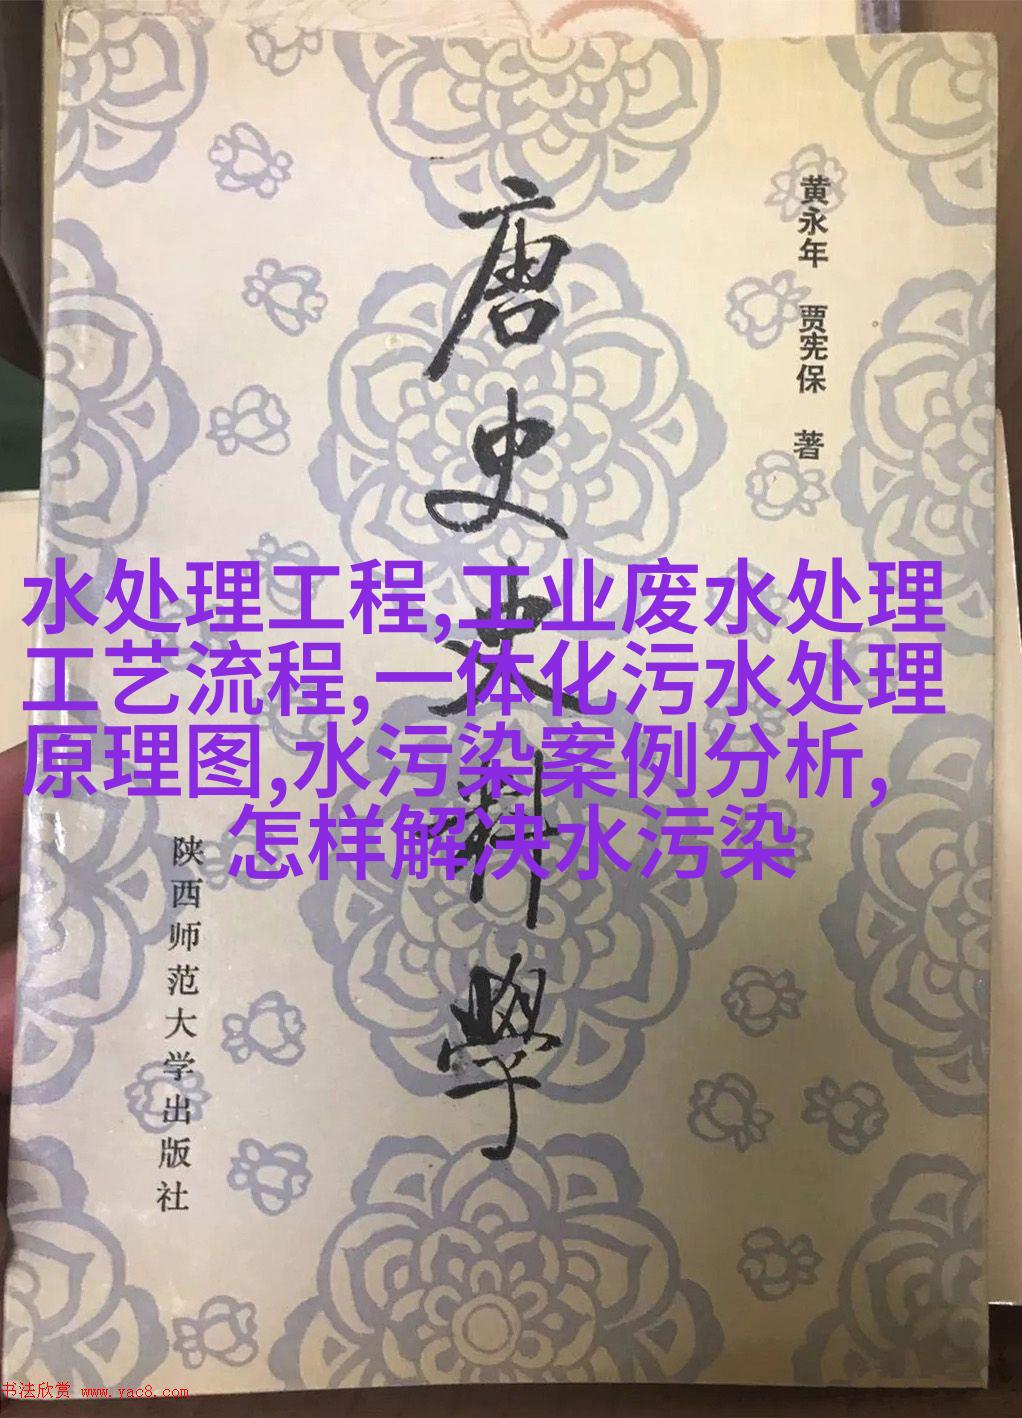 黄永年 贾宪保 著
唐史史料学
陕西师范大学出版社
水处理工程,工业废水处理
工艺流程,一体化污水处理
原理图,水污染案例分析,
怎样解决水污染
书法欣赏 www.yac8.com